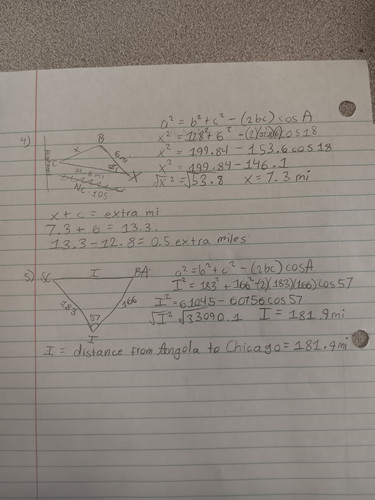 a² = b² + c² - (2bc) cos A
4)
B
x
6 mi
C
18
X
NC 105
x² = 12.8² + 6² - (2)(12.8)(6) cos 18
x² = 199.84 - 153.6 cos 18
x² = 199.84 - 146.1
√x² = √53.8 x = 7.3 mi
x + c = extra mi
7.3 + 6 = 13.3
13.3 - 12.8 = 0.5 extra miles
5)
I
183
57
166
I
a² = b² + c² - (2bc) cos A
I² = 183² + 166² - (2)(183)(166) cos 57
I² = 61045 - 60756 cos 57
√I² √33090.1 I = 181.9 mi
I = distance from Angola to Chicago = 181.9 mi